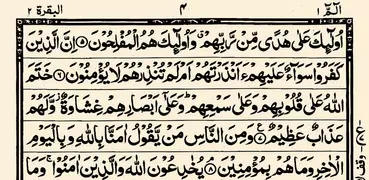 الٓمّٓ ۱ ۴ البقرة ۲
اُولٰٓئِكَ عَلٰى هُدًى مِّنْ رَّبِّهِمْ ۙ وَاُولٰٓئِكَ هُمُ الْمُفْلِحُوْنَ ۵ اِنَّ الَّذِيْنَ
كَفَرُوْا سَوَآءٌ عَلَيْهِمْ ءَاَنْذَرْتَهُمْ اَمْ لَمْ تُنْذِرْهُمْ لَا يُؤْمِنُوْنَ ۶ خَتَمَ
اللّٰهُ عَلٰى قُلُوْبِهِمْ وَعَلٰى سَمْعِهِمْ ؕ وَعَلٰٓى اَبْصَارِهِمْ غِشَاوَةٌ ؗ وَّلَهُمْ
عَذَابٌ عَظِيْمٌ ۷ وَمِنَ النَّاسِ مَنْ يَّقُوْلُ اٰمَنَّا بِاللّٰهِ وَبِالْيَوْمِ
الْاٰخِرِ وَمَا هُمْ بِمُؤْمِنِيْنَ ۘ ۸ يُخٰدِعُوْنَ اللّٰهَ وَالَّذِيْنَ اٰمَنُوْا ۚ وَمَا